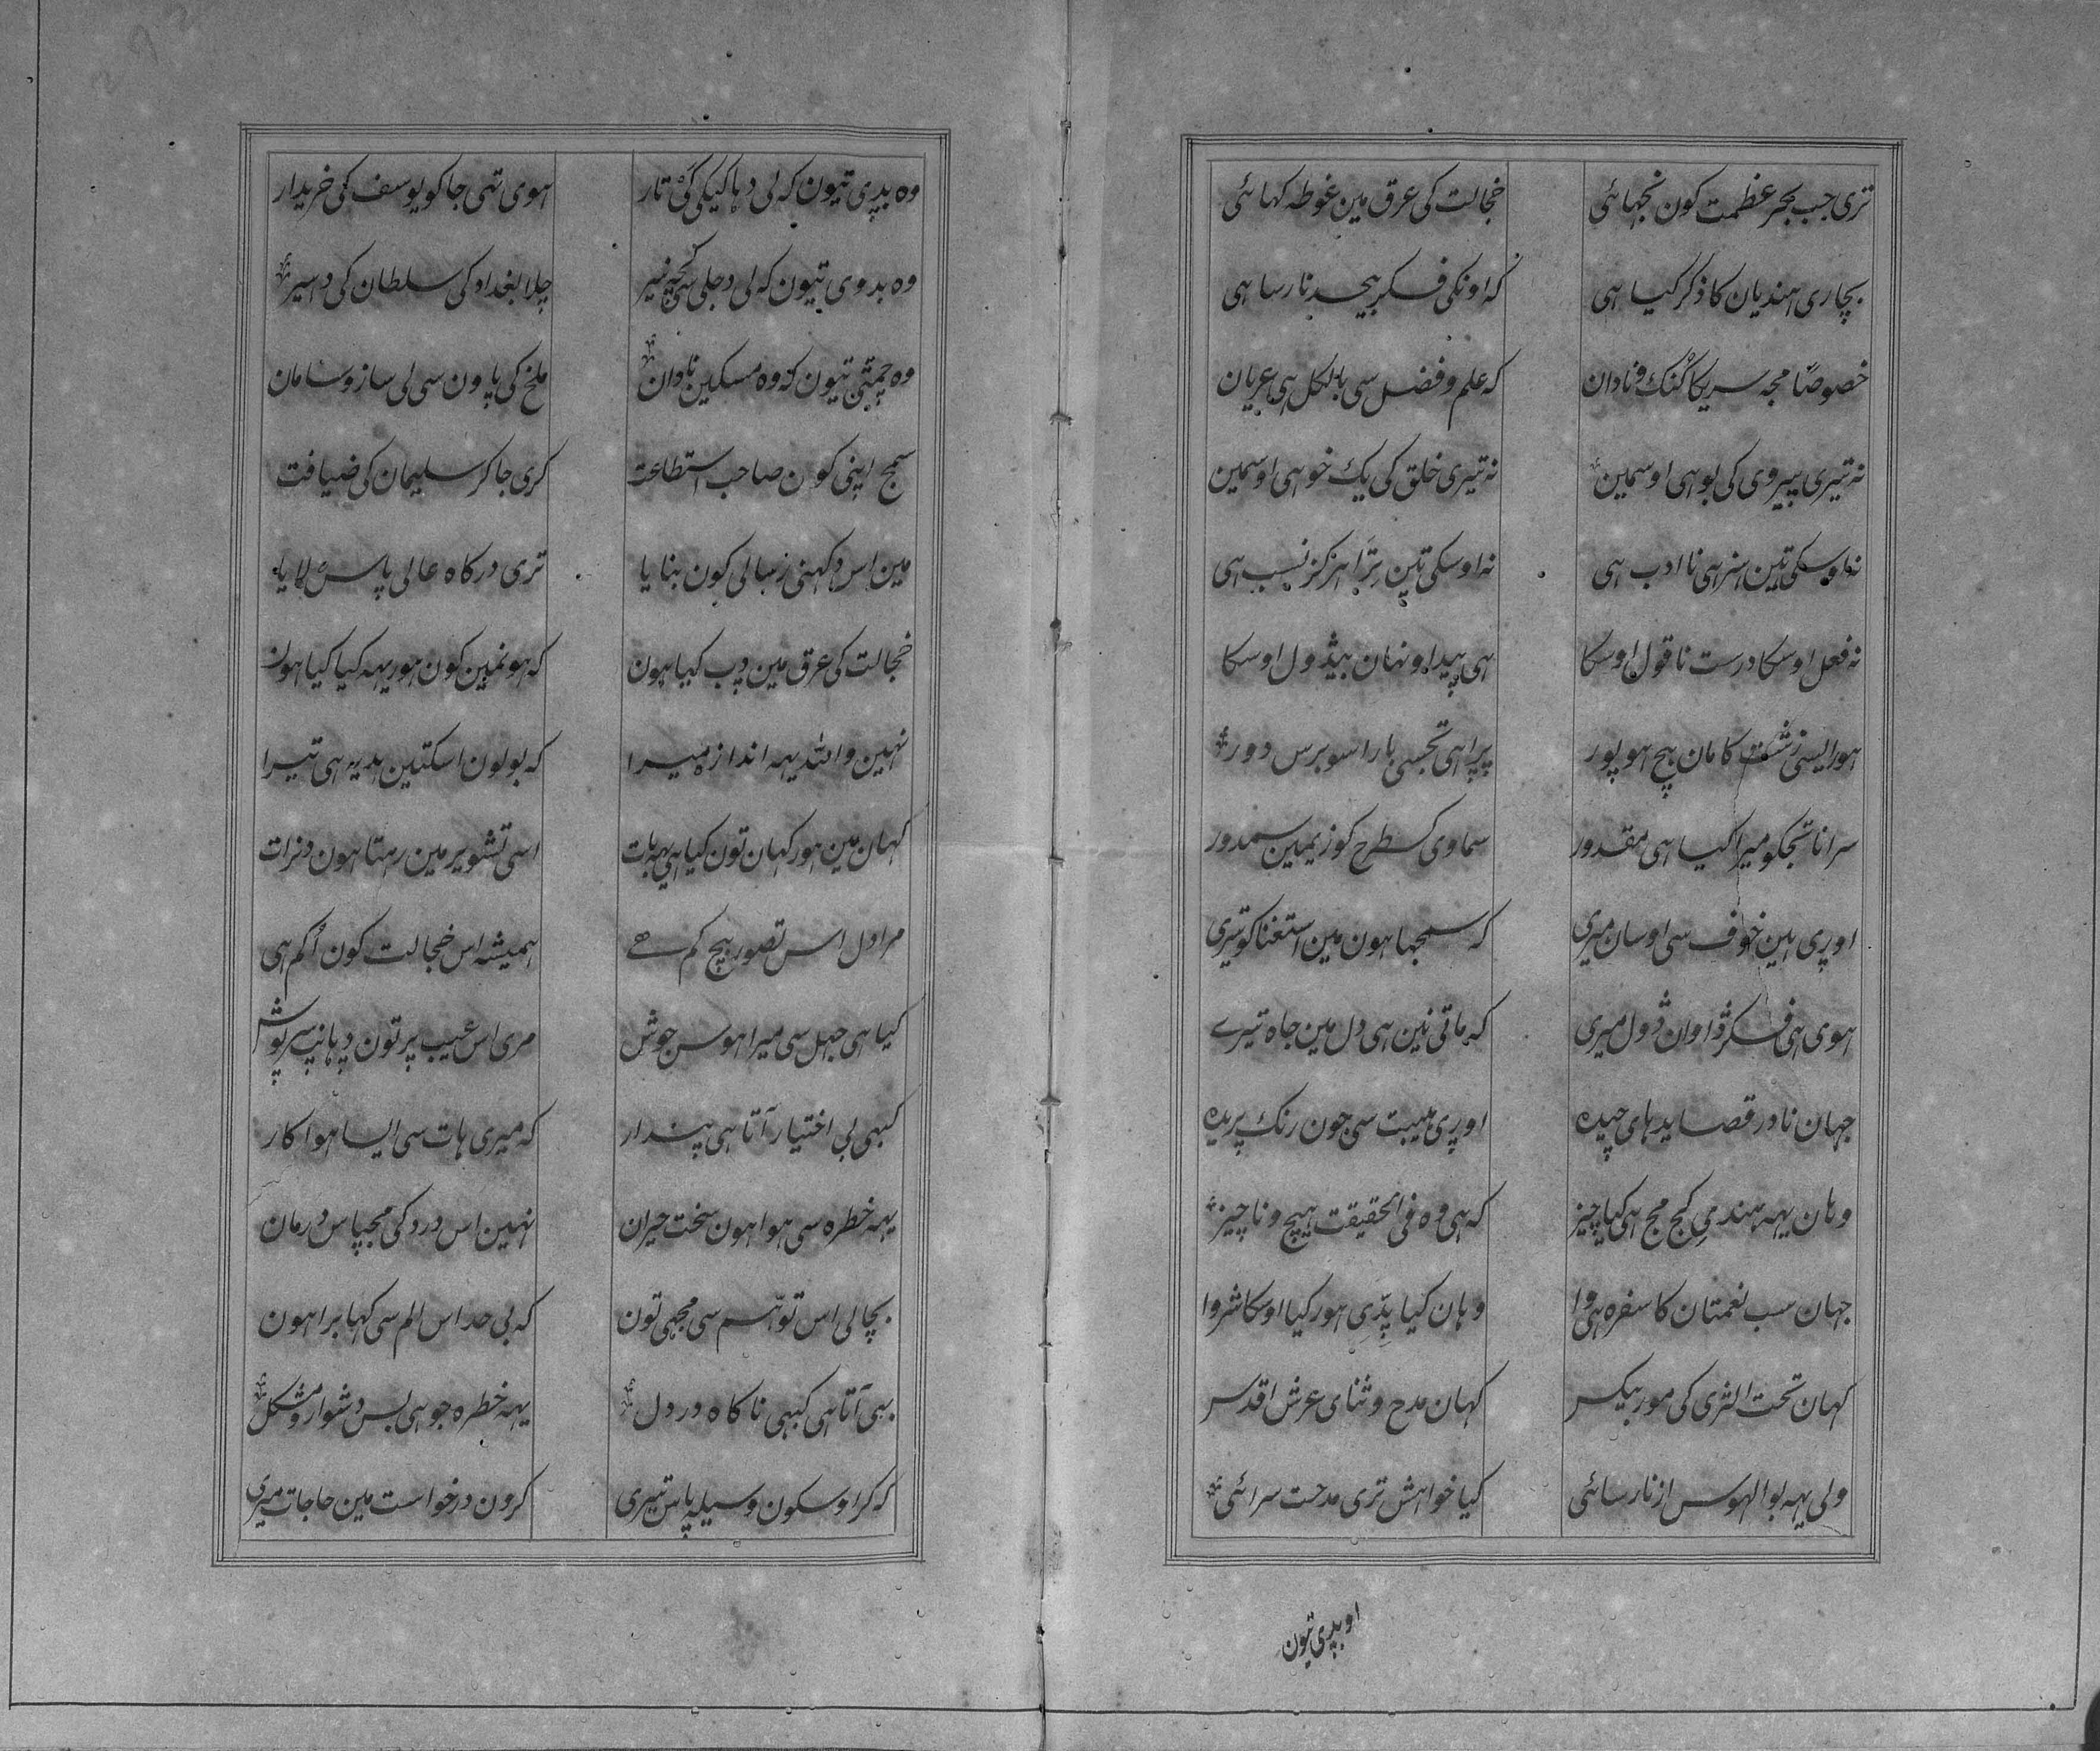 تری جب بحر عظمت کون نجہائی خجالت کی عرق مین غوطہ کہائی
بچاری ہندیان کا ذکر کیا ہی کہ اونکی فکر بیحد نارسا ہی
خصوصًا مجہ سریکا گنگ و نادان کہ علم و فضل سی بالکل ہی عریان
نہ تیری پیروی کی بو ہی اوسمین نہ تیری خلق کی یک خو ہی اوسمین
نہ اوسکی تین ہنر ہی نا ادب ہی نہ اوسکی تین ترا ہرگز نسب ہی
نہ فعل اوسکا درست نا قول اوسکا ہی پیدا و نہان بیڈول اوسکا
ہور ایسی زشت کامان بیچ ہو پور پڑا ہی تجسی بارا سو برس دور
سرانا تجکو میرا کیا ہی مقدور سماوی کسطرح کوزیمین سمدور
اوڑی ہین خوف سی اوسان میری کہ سمجہا ہون مین استغنا کو تیری
ہوی ہی فکر ڈاوان ڈول میری کہ ماتی نین ہی دل مین جاہ تیرے
جہان نادر قصاید ہای چیدہ اوڑی ہیبت سی جون رنک پریدہ
وہان یہہ ہندیِ کج مج ہی کیا چیز کہ ہی وہ فی الحقیقت ہیچ و ناچیز
جہان سب نعمتان کا سفرہ ہی وا وہان کیا پدّی ہور کیا اوسکا شروا
کہان تحت الثری کی مور بیکس کہان مدح و ثنای عرش اقدس
ولی یہہ بوالہوس از نارسائی کیا خواہش تری مدحت سرائی
او بڈی تیون
وہ بڈی تیون کہ لی دہاکیکی کئی تار ہوی تہی جا کو یوسف کی خریدار
وہ بدوی تیون کہ لی دجلی سی کچہ نیر چلا بغداد کی سلطان کی دہیر
وہ چمٹی تیون کہ وہ مسکین نادان ملخ کی پاون سی لی ساز و سامان
سمج اپنی کون صاحب استطاعت کری جا کر سلیمان کی ضیافت
مین اس دکہنی رسالی کون بنایا تری درکاہ عالی پاس لایا
خجالت کی عرق مین ڈب کیا ہون کہ ہو نمین کون ہور یہہ کیا کیا ہون
نہین واللہ یہہ اندازہ میرا کہ بولون اسکتین ہدیہ ہی تیرا
کہان مین ہور کہان تون کیا ہی یہہ بات اسی تشویر مین رہتا ہون دنرات
مرا دل اس تصور بیچ کم ہے ہمیشہ اس خجالت کون اُگم ہی
کیا ہی جہل سی میرا ہوس جوش مری اس عیب پر تون ڈہانپ سرپوش
کبہی بی اختیار آتا ہی پندار کہ میری ہات سی ایسا ہوا کار
یہہ خطرہ سی ہوا ہون سخت حیران نہین اس درد کی مجپاس درمان
بچا لی اس توہّم سی مجہی تون کہ بی حد اس الم سی کہابرا ہون
بہی آتا ہی کبہی ناکاہ در دل یہہ خطرہ جو ہی بس دشوار و مشکل
کہ کر اوسکون وسیلہ پاس تیری کرون درخواست مین حاجات میری